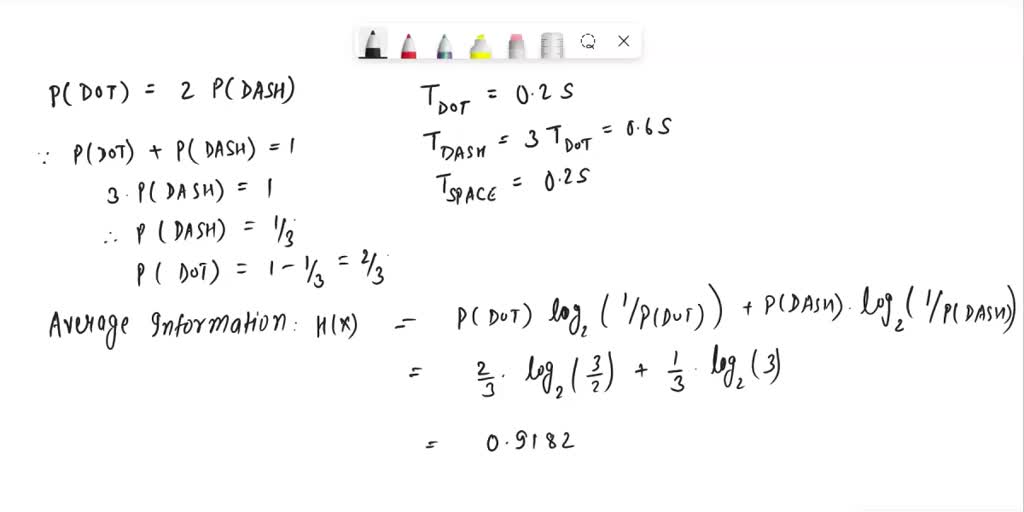 P(DOT) = 2 P(DASH)
∵ P(DOT) + P(DASH) = 1
3. P(DASH) = 1
∴ P (DASH) = 1/3
P( DOT) = 1 - 1/3 = 2/3
T_DOT = 0.2 S
T_DASH = 3 T_DOT = 0.6S
T_SPACE = 0.2S
Average Information: H(X) = P(DOT) log₂ (1/P(DOT)) + P(DASH). log₂ (1/P(DASH)
= 2/3. log₂ (3/2) + 1/3. log₂ (3)
= 0.9182